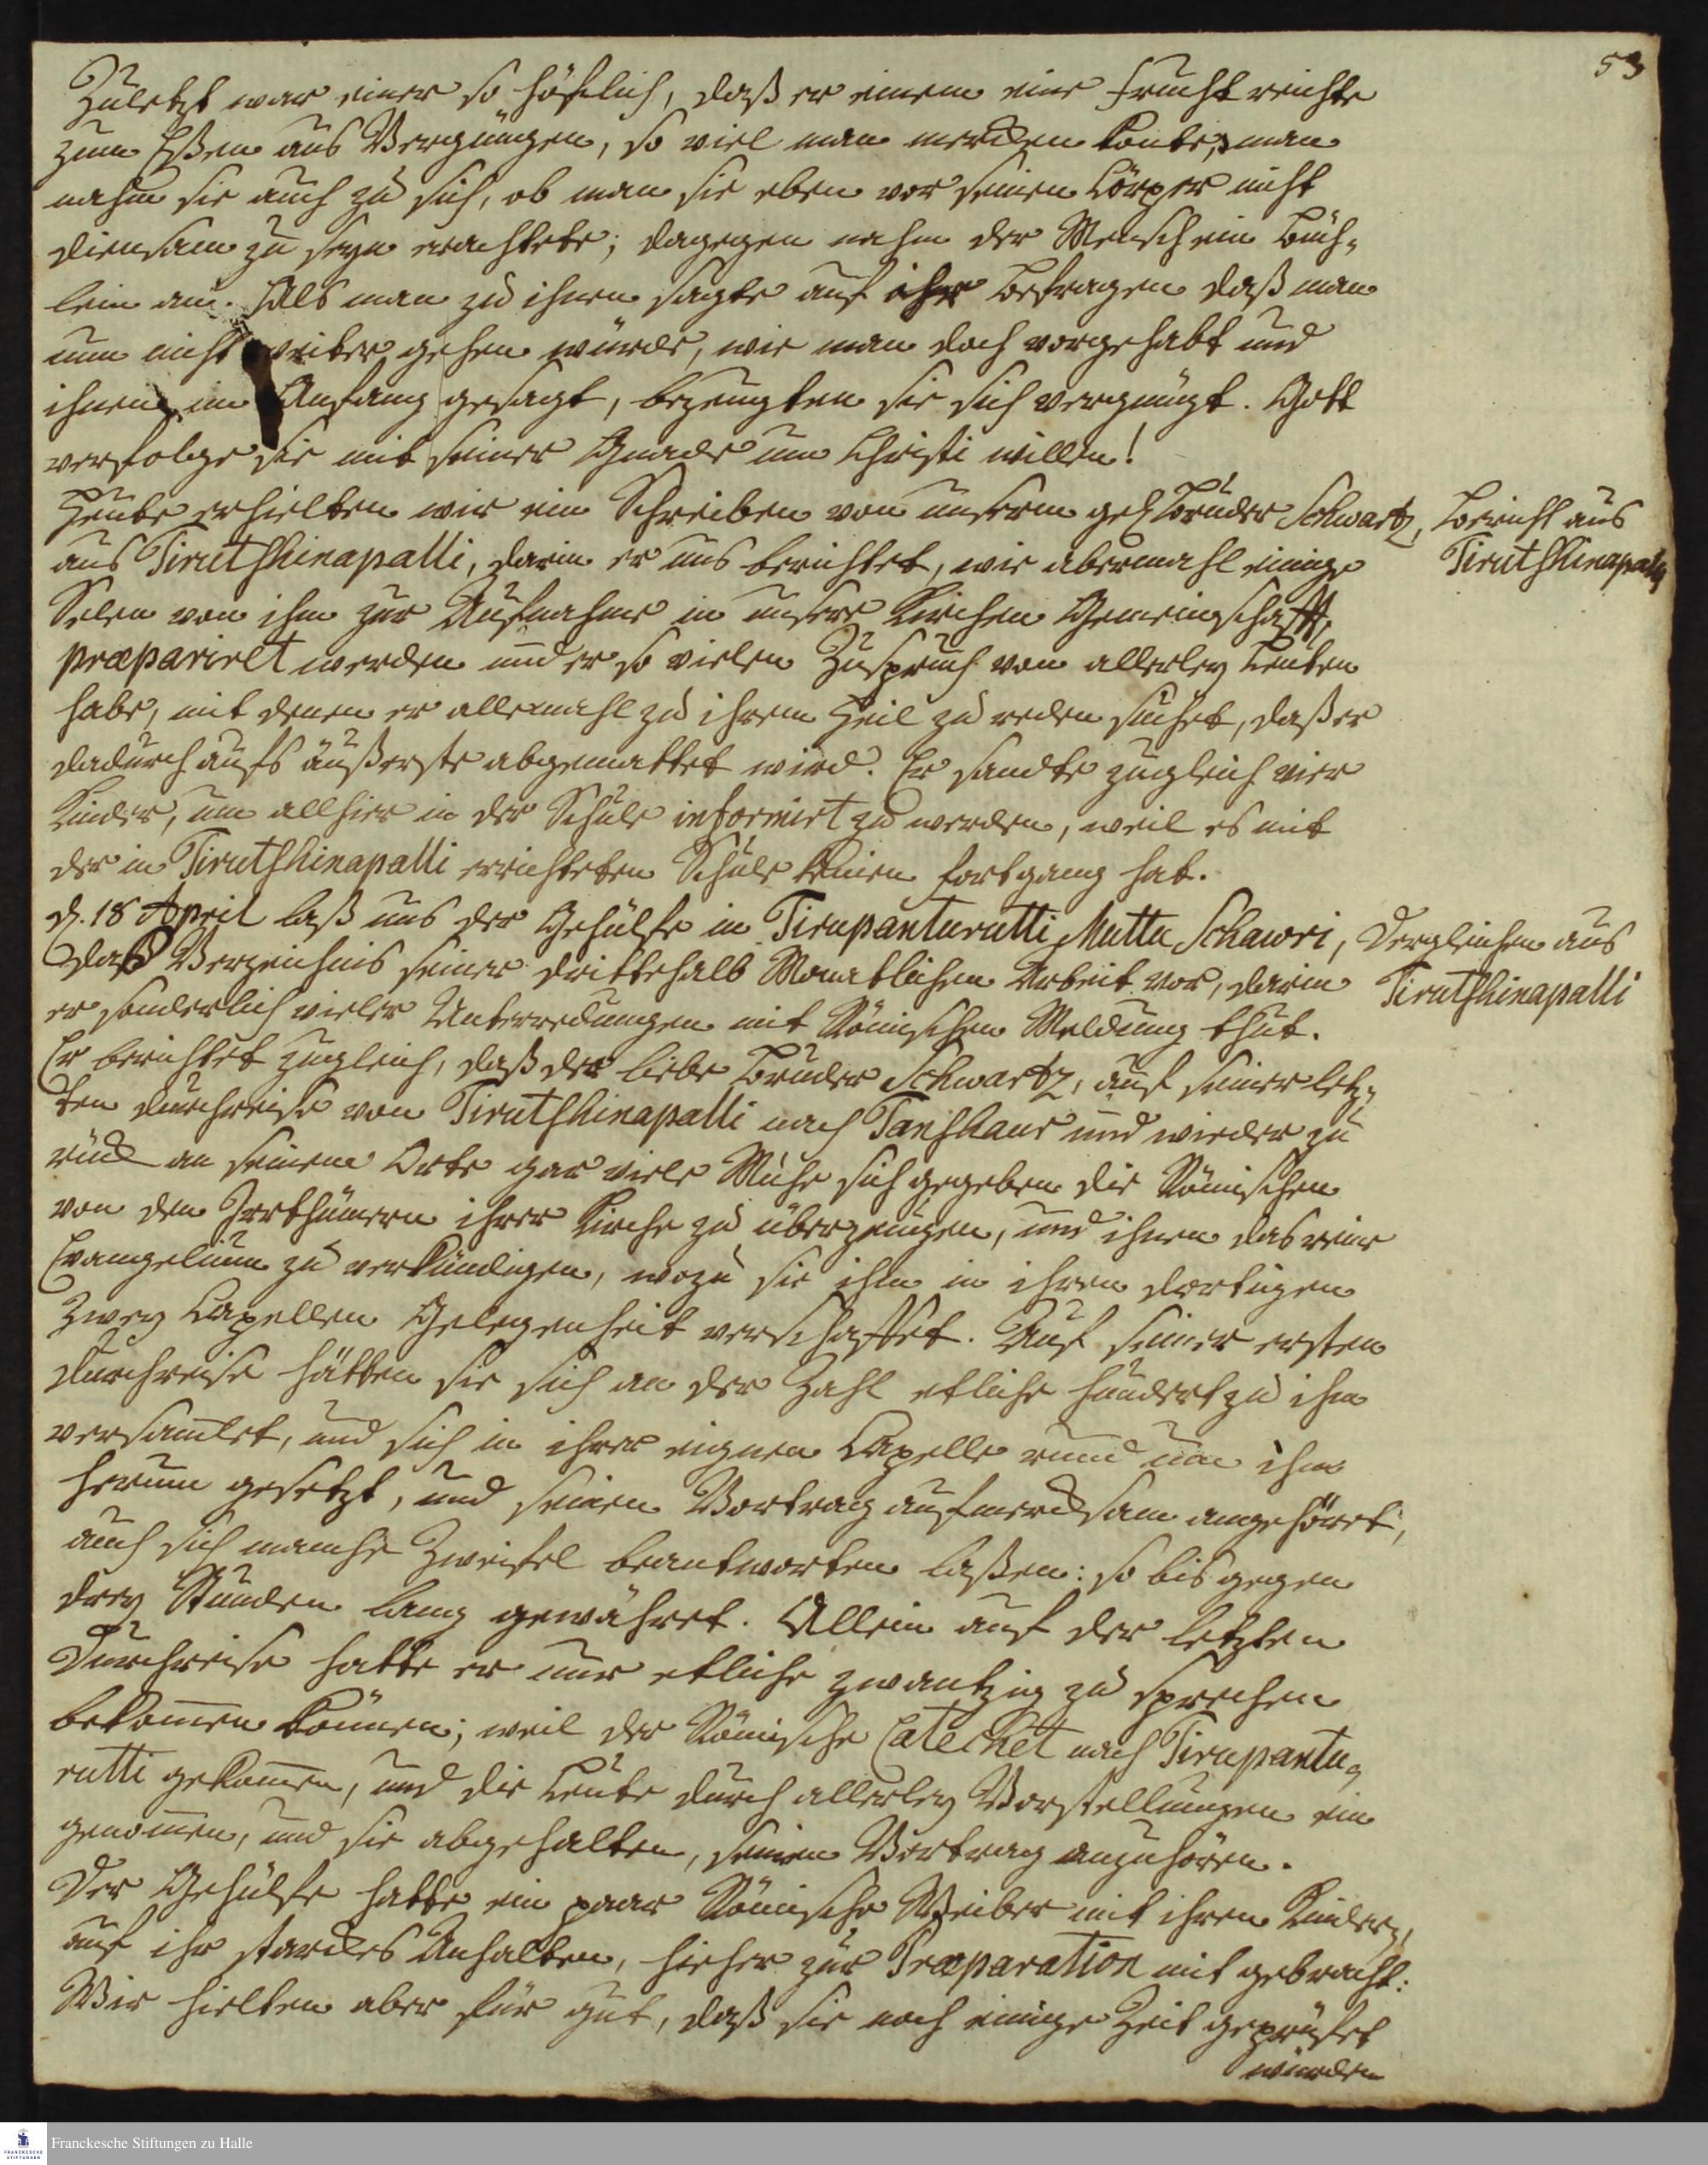 53
Zuletzt war einer so höflich, daß er einem eine Frucht reichte
zum Eßen aus Vergnügen, so viel man mercken konte, man
nahm sie auch zu sich, ob man sie eben vor seinen Cörper nicht
diensam zu seyn erachtete; dagegen nahm der Mensch ein Büch-
lein an. Als man zu ihnen sagte auf ihr Befragen daß man
nun nicht weiter gehen würde, wie man doch vorgehabt und
ihnen im Anfang gesagt, bezeugten sie sich vergnügt. Gott
verfolge sie mit seiner Gnade um Christi willen!
Heute erhielten wir ein Schreiben von unserm gel. Bruder Schwartz,
aus Tirutshinapalli, darin er uns berichtet, wie abermahl einige
Selen von ihm zur Aufnahme in unsere Kirchen Gemeinschafft,
præpariret werden und er so vielen Zuspruch von allerley Leuten
habe, mit denen er allemahl zu ihrem Heil zu reden suchet, daß er
dadurch aufs äußerste abgemattet wird. Er sandte zugleich vier
Kinder, um allhier in der Schule informirt zu werden, weil es mit
der in Tirutshinapalli errichteten Schule keinen Fortgang hat.
Bericht aus
Tirutshinapalli
d. 18 April laß uns der Gehülfe in Tirupanturutti Muttu Schawri,
daß Verzeichnis seiner drittehalb Monatlichen Arbeit vor, darin
er sonderlich vieler Unterredungen mit Römischen Meldung thut.
Er berichtet zugleich, daß der liebe Bruder Schwartz, auf seiner letz-
ten Durchreise von Tirutshinapalli nach Tanshaur und wieder zu
rück an seinem Orte gar viele Mühe sich gegeben die Römischen
von den Irrthümern ihrer Kirche zu überzeugen, und ihnen das reine
Evangelium zu verkündigen, wozu sie ihm in ihren dortigen
zwey Capellen Gelegenheit verschaffet. Auf seiner ersten
Durchreise hätten sie sich an der Zahl etliche hundert zu ihm
versamlet, und sich in ihrer eignen Capelle rund um ihm
herum gesetzt, und seinen Vortrag aufmercksam angehöret,
auch sich manche Zweifel beantworten laßen: so bis gegen
drey Stunden lang gewähret. Allein auf der letzten
Durchreise hatte er nur etliche zwantzig zu sprechen
bekommen können; weil der Römische Catechet nach Tirupantu-
rutti gekommen, und die Leute durch allerley Vorstellungen ein
genommen, und sie abgehalten, seinen Vortrag anzuhören.
Der Gehülfe hatte ein paar Römische Weiber mit ihren Kindern,
auf ihr starckes Anhalten, hieher zur Præparation mit gebracht:
Wir hielten aber für gut, daß sie noch einige Zeit geprüfet
würden
Dergleichen aus
Tirutshinapalli
Franckesche Stiftungen zu Halle